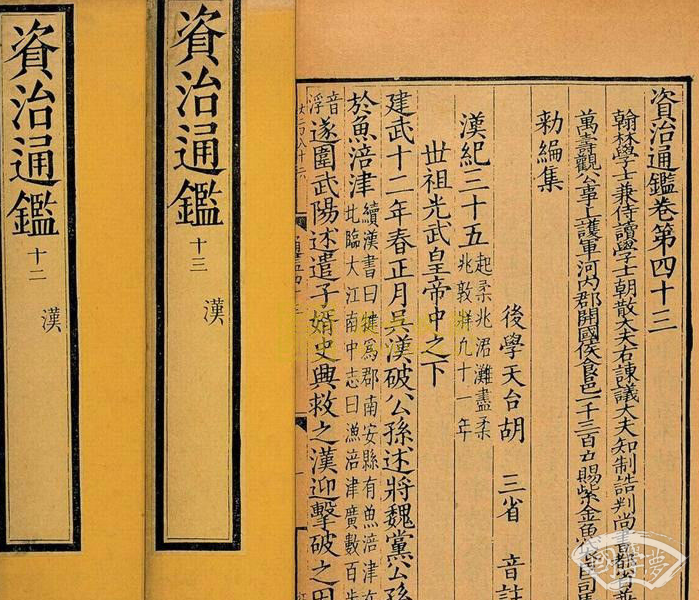 資治通鑑卷第四十三
翰林學士兼侍讀學士朝散大夫右諫議大夫知制誥判尚書都省兼
萬壽觀公事上護軍河內郡開國侯食邑一千三百戶賜紫金魚袋臣司馬
勑編集
後學天台胡 三省 音註
漢紀三十五
起柔兆涒灘盡柔
兆敦牂凡十一年
世祖光武皇帝中之下
建武十二年春正月吳漢破公孫述將魏黨公孫
於魚涪津
續漢書曰犍爲郡南安縣有魚涪津在
北臨大江南中志曰漁涪津廣數百步
音
浮
遂圍武陽述遣子婿史興救之漢迎擊破之因
資治通鑑
十三
漢
資治通鑑
十二
漢